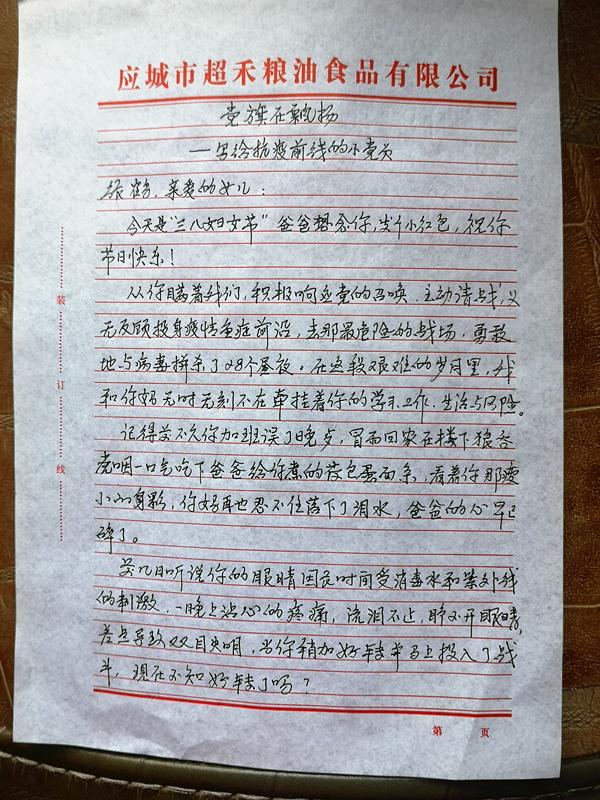 应城市超禾粮油食品有限公司
党旗在飘扬
——写给抗疫前线的小党员
张鹤,亲爱的女儿:
今天是“三八妇女节”爸爸想念你,发个小红包,祝你
节日快乐!
从你瞒着我们,积极响应党的召唤,主动请战,义
无反顾投身疫情重症前沿,去那最危险的战场,勇敢
地与病毒拼杀了28个昼夜。在这段艰难的岁月里,我
和你妈无时无刻不在牵挂着你的学习、工作、生活与风险。
记得前不久你加班误了晚点,冒雨回家在楼下狼吞
虎咽一口气吃下爸爸给你煮的荷包蛋面条,看着你那瘦
小的身影,你妈再也忍不住落下了泪水,爸爸的心早已
碎了。
前几日听说你的眼睛因长时间受消毒水和紫外线
的刺激,一晚上沾心的疼痛,流泪不止,睁不开眼睛,
差点导致双目失明,当你稍加好转并马上投入了战
斗,现在不知好转了吗?
装
订
线
第 页